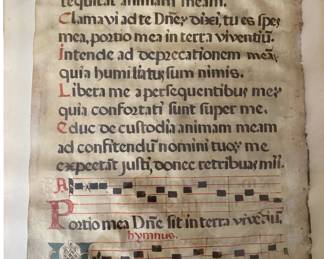 requirat animam meam.
Clama vi ad te Dñe, dixi, tu es spes
mea, portio mea in terra viventiũ.
Intende ad deprecationem meã,
quia humiliatus sum nimis.
Libera me a persequentibus me,
quia confortati sunt super me.
Educ de custodia animam meam
ad confitendũ nomini tuo, me
expectãt justi, donec retribuas mi.
A
Portio mea Dñe sit in terra viventiũ.
hymnus.